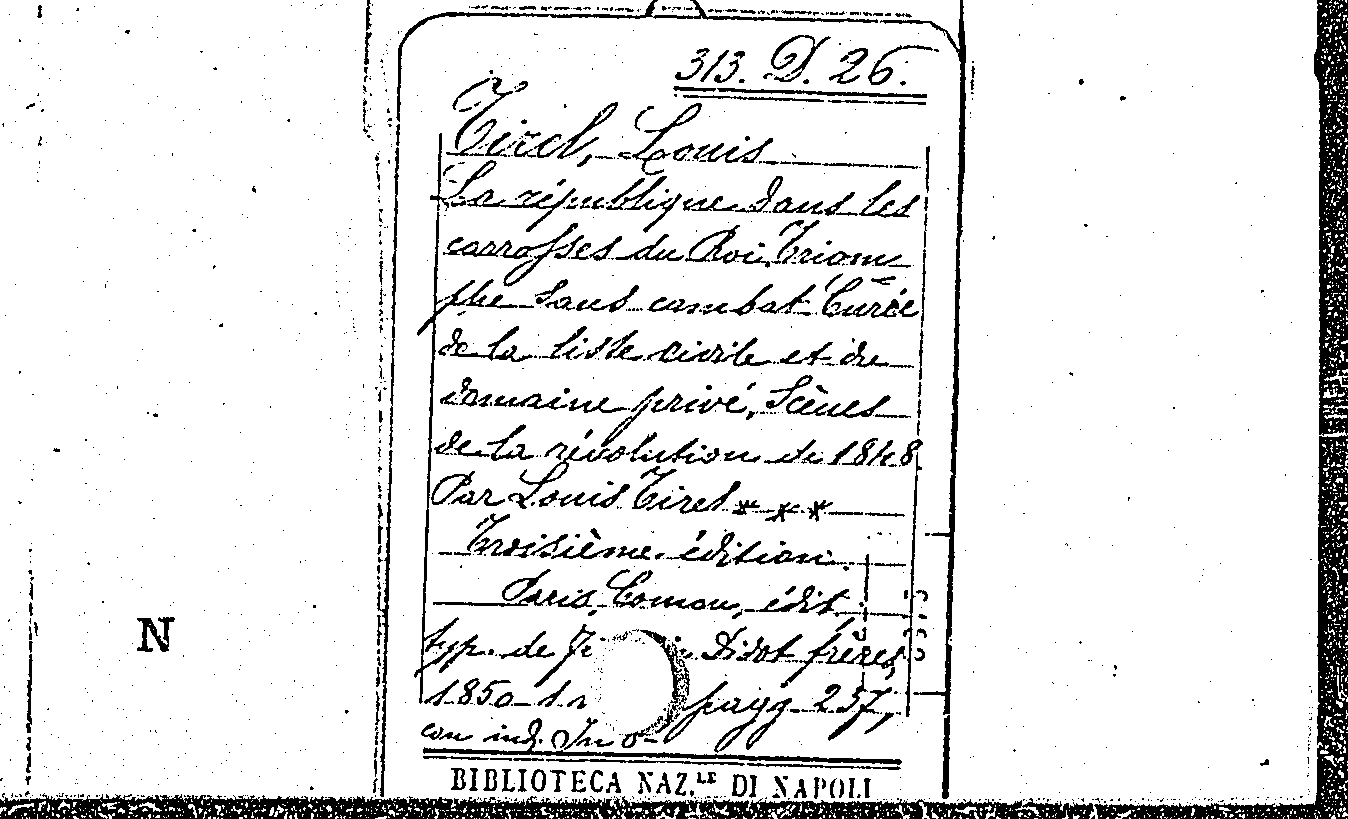 313. D. 26.
Tirel, Louis
La république dans les
carrosses du Roi. Triom-
phe sans combat. Curée
de la liste civile et du
domaine privé, Scènes
de la révolution de 1848.
Par Louis Tirel ***
Troisième édition.
Paris, Comon, édit.
typ. de Didot frères,
1850 pagg. 257,
con ind. In 8-
N
BIBLIOTECA NAZ.LE DI NAPOLI